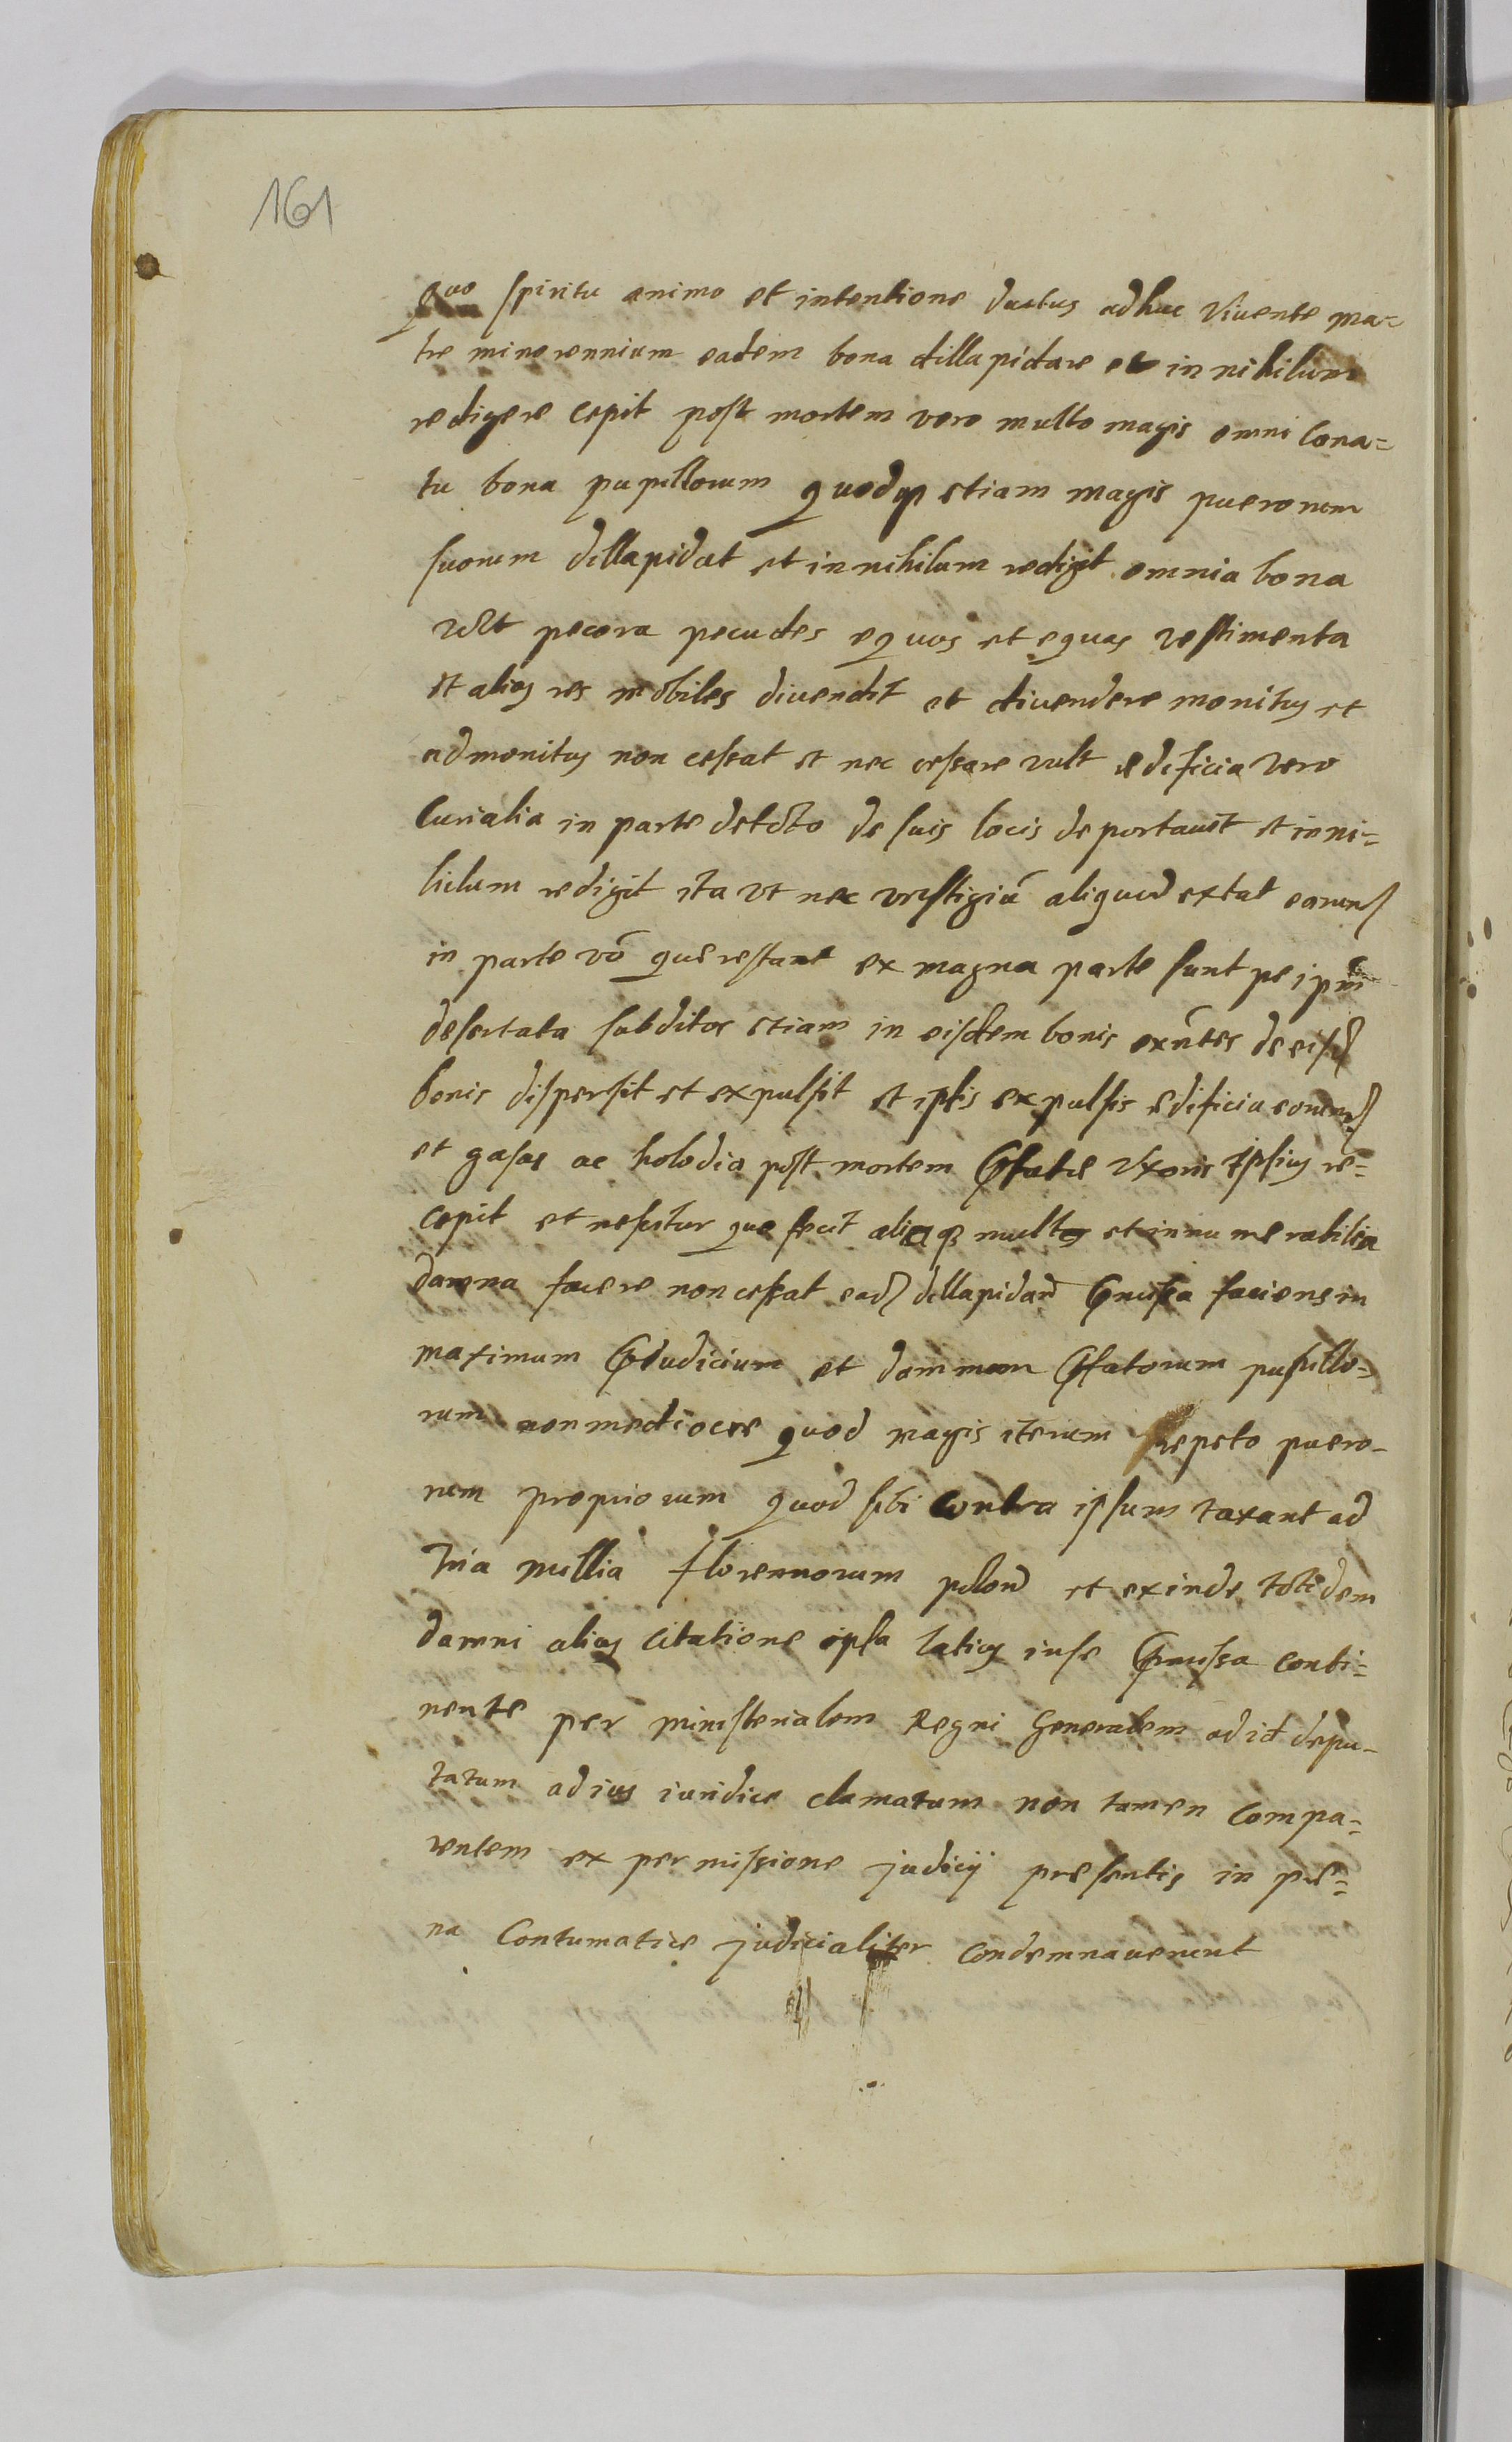 161
quo spiritu animo et intentione ductus adhuc vivente ma=
tre minorennium eadem bona dillapidare et in nihilum
redigere cepit post mortem vero multo magis omni cona=
tu bona pupillorum quodq etiam magis puerorum
suorum dillapidat et in nihilum redigit omnia bona
vt pecora pecudes equos et equas vestimenta
et alias res mobiles divendit et divendere monitus et
admonitus non cessat et nec cessare vult edificia vero
Curialia in parte de suis locis deportavit et in ni=
hilum redigit ita vt nec vestigiū aliquod extat eorund
in parte vō que restant ex magna parte sunt per ipm
desertata subditos etiam in eisdem bonis exn̄tes de eisd
bonis dispersit et expulsit et ipsis expulsis edificia eorund
et gasas ac holodia post mortem Pfate vxoris ipsius re=
cepit et nescitur que fecit aliaq multa et innumerabilia
damna facere non cessat ead dillapidand Pmissa faciens in
maximum Pdudicium et damnum Pfatorum pupillo=
rum non mediocre quod magis iterum repeto puero-
rum propriorum quod sibi contra ipsum taxant ad
tria millia florennorum polon et exinde totidem
damni alias citatione ipsa latius in se Pmissa conti=
nente per ministerialem Regni Generalem ad id depu-
tatum ad ius iuridice clamatum non tamen compa=
rentem ex permissione judicij presentis in pe=
na Contumatice judicialiter condemnaverunt